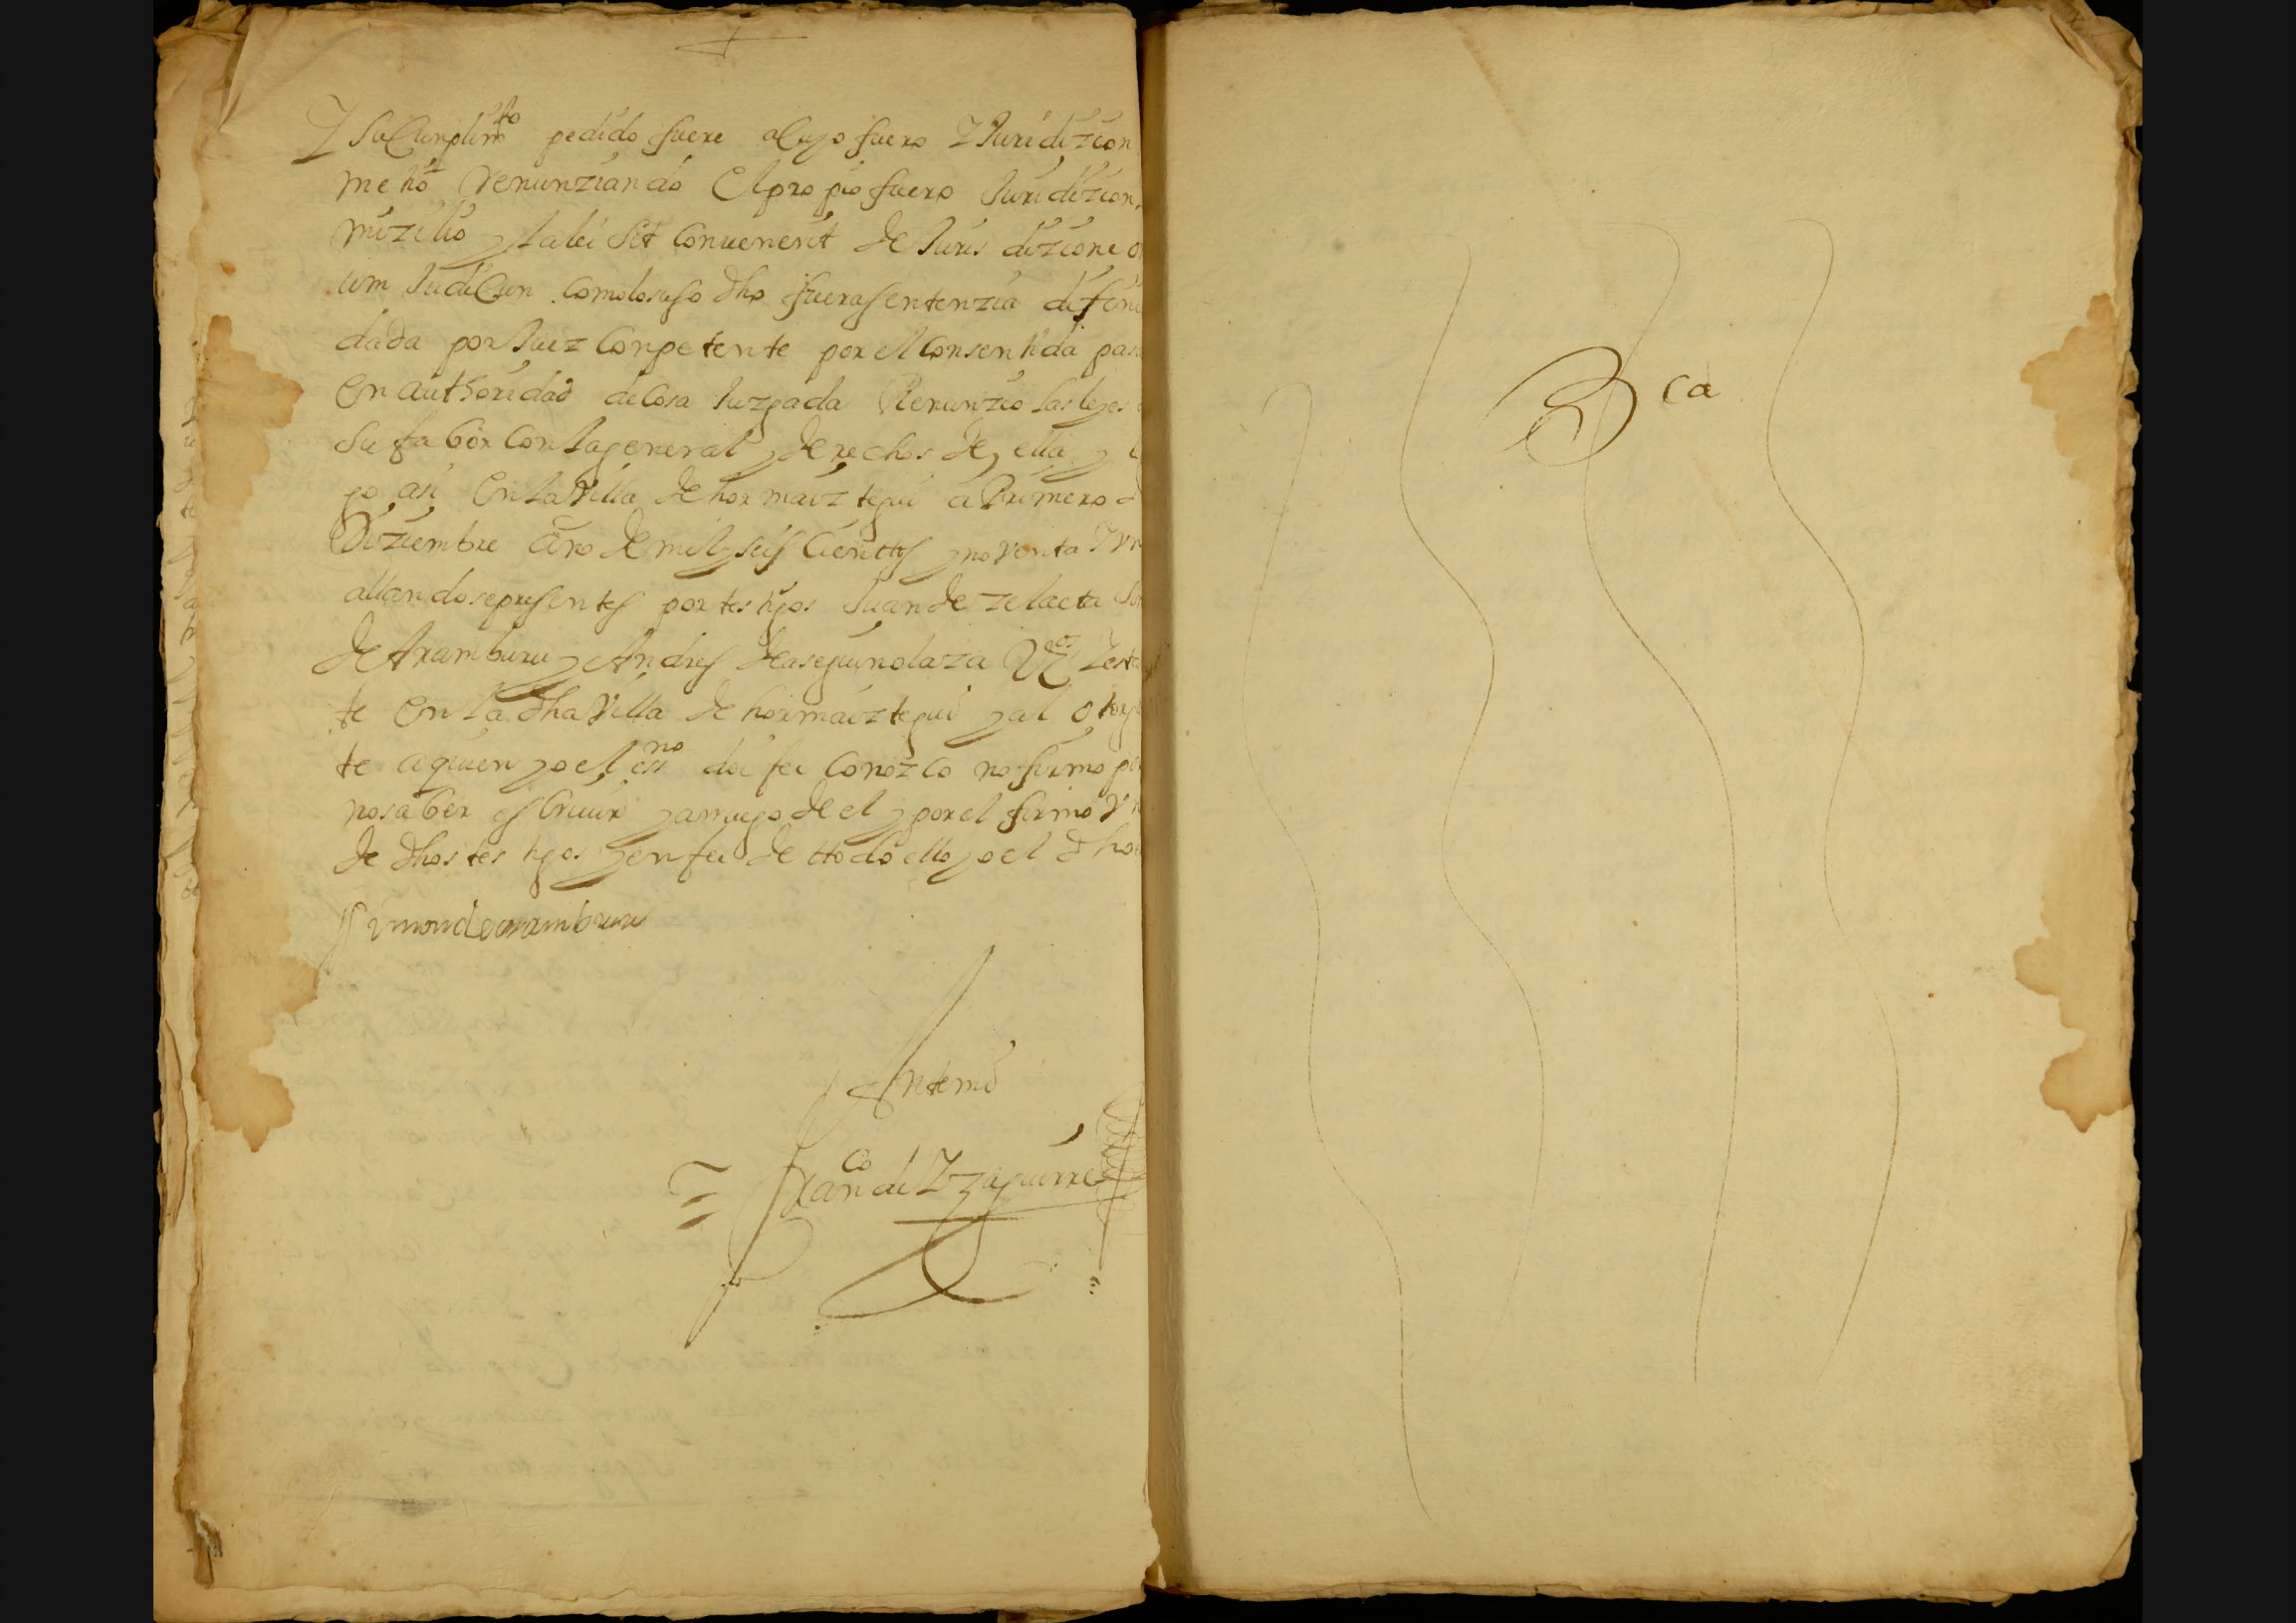 Y Su Cunplimto pedido fuere a Cuyo fuero Y Juridizion
me to Renunziando El propio fuero Juridizion
mizilio y la lei Sit Convenerit de Juris dizione o
iun Judicun como lo suso dho fuera sentenzia difini
dada por Juez Conpetente por el Consentida pas
En authoridad de Cosa Juzgada Renunzio las leyes
Su fabor Con la general y derechos de ella y
go asi En la Villa de hormaiztegui a Primero d
Diziembre año de mil y seis Cienttos y noventa Y Vn
allandose presentes por testigos Juan de zelaeta Si
de Aramburu y Andres de aseguinolaza Vezos Y esta
te En la dha Villa de hormaiztegui y al otorg
te a quien yo el essno doi fee Conozco no firmo po
no saber es Crivir y a ruego de el y por el firmo V n
de dhos testigos y en fee de ttodo ello yo el dho
Simon de aramburu
Ante mi
Franco de Yzaguirre
ca